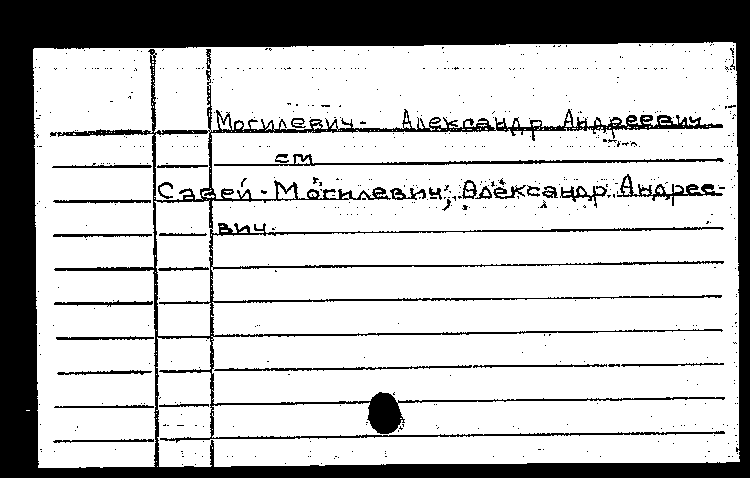 Могилевич- Александр Андреевич
см
Савей-Могилевич, Александр Андрее-
вич.